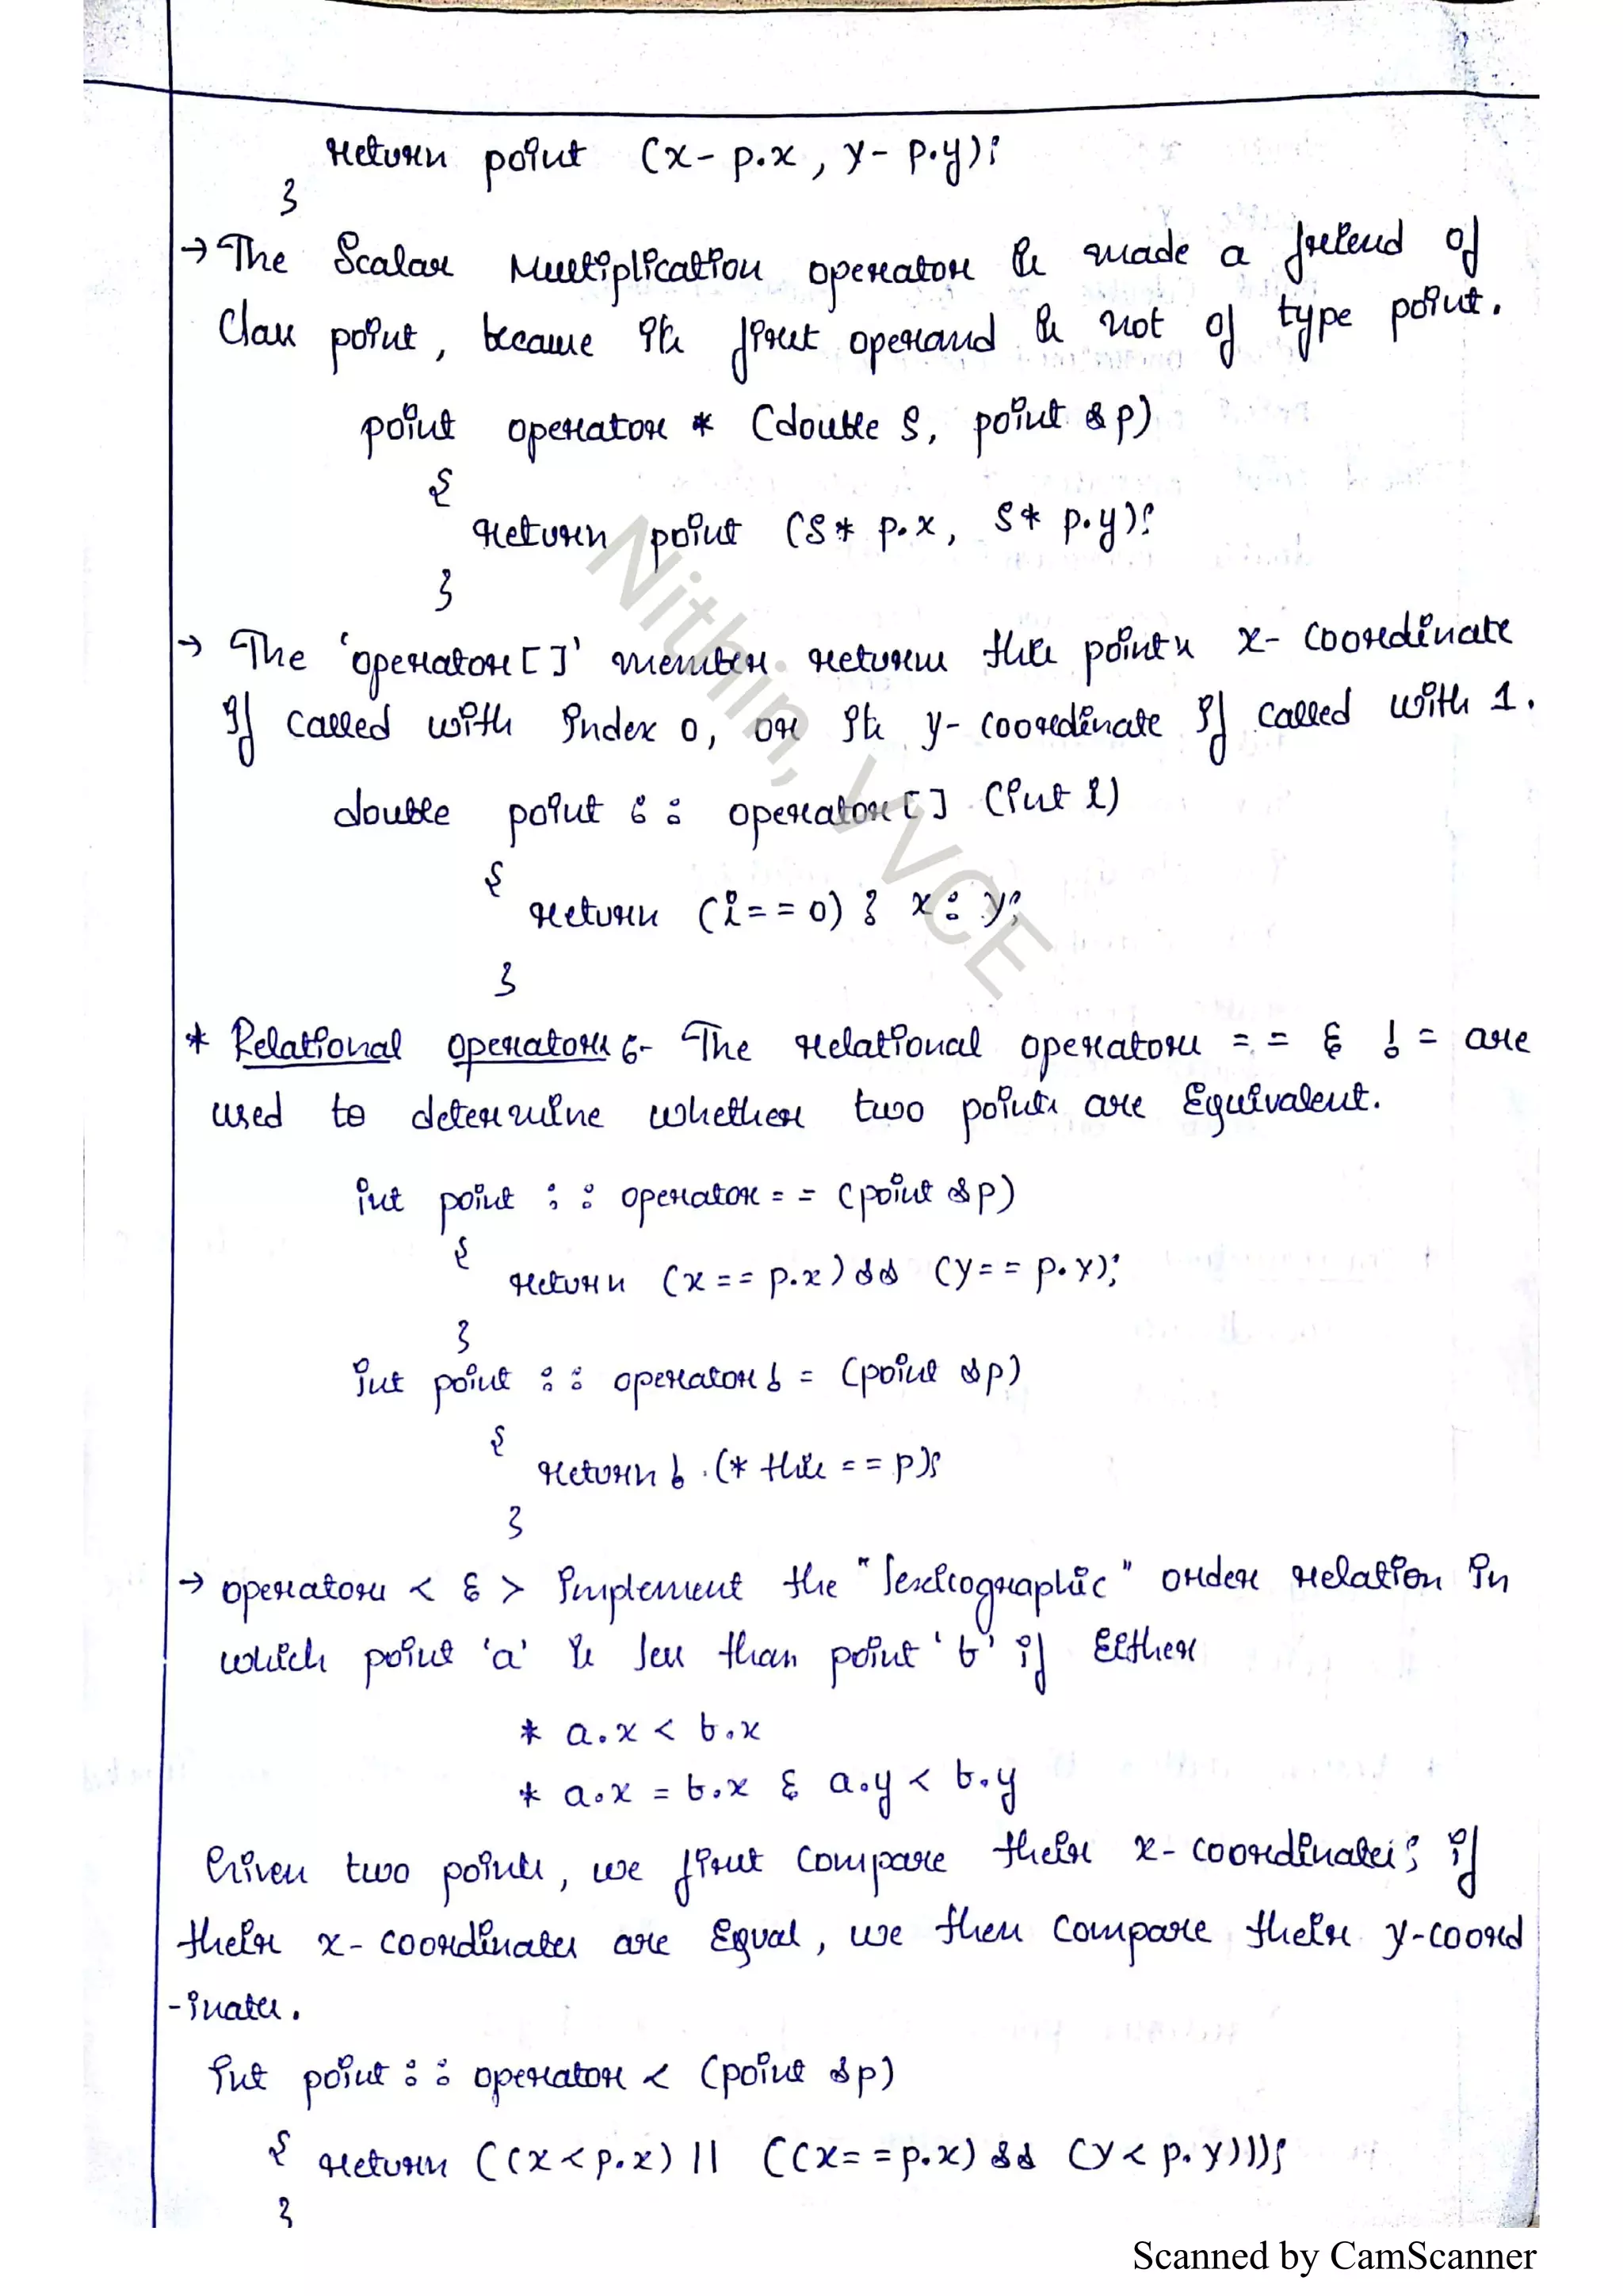 return point (x - p.x, y - p.y);
}
→ The Scalar Multiplication operator is made a friend of
Class point, because its first operand is not of type point.
point operator * (double s, point &p)
{
return point (s * p.x, s * p.y);
}
→ The 'operator[]' member returns this points x-coordinate
if called with index 0, or its y-coordinate if called with 1.
double point :: operator[] (int i)
{
return (i == 0) ? x : y;
}
* Relational operators :- The relational operators == & != are
used to determine whether two points are Equivalent.
int point :: operator == (point &p)
{
return (x == p.x) && (y == p.y);
}
int point :: operator != (point &p)
{
return ! (* this == p);
}
→ operators < & > implement the "lexicographic" order relation in
which point 'a' is less than point 'b' if Either
* a.x < b.x
* a.x = b.x & a.y < b.y
Given two points, we first compare their x-coordinates; if
their x-coordinates are Equal, we then compare their y-coord
-inates.
int point :: operator < (point &p)
{ return ((x < p.x) || ((x == p.x) && (y < p.y)));
}
Nithin, VVCE
Scanned by CamScanner